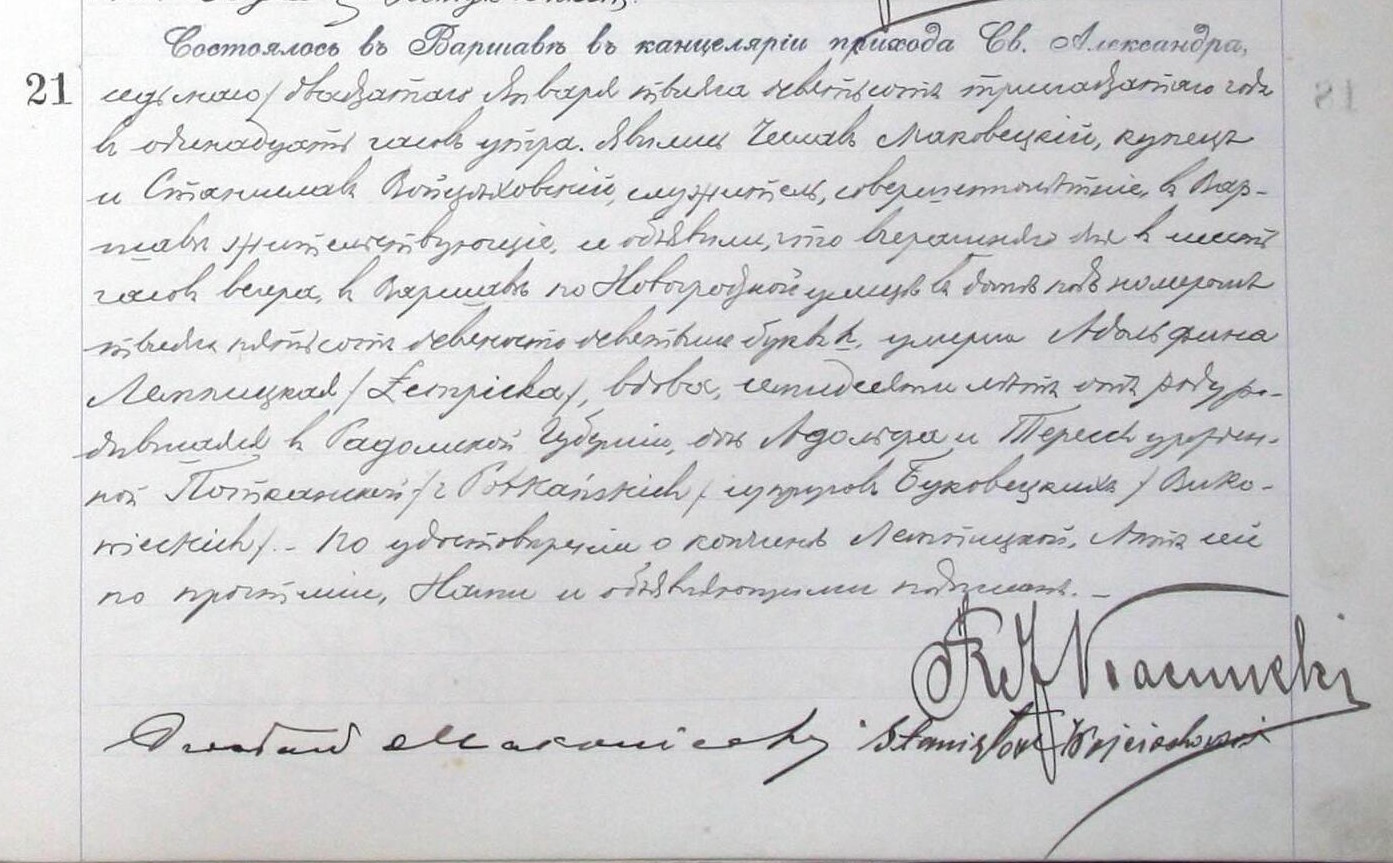 Состоялось въ Варшавѣ въ канцеляріи прихода Св. Александра,
21 седьмаго / двадцатаго Января тысяча девятьсотъ тринадцатаго года
въ одинадцать часовъ утра. Явились Чеславъ Маковецкій, купецъ
и Станиславъ Войцѣховскій, служитель, совершеннолѣтніе, въ Вар-
шавѣ жительствующіе, и объявили, что вчерашняго дня въ шесть
часовъ вечера, въ Варшавѣ по Новогродской улицѣ въ домѣ подъ номеромъ
тысяча пятьсотъ девяносто девятымъ буква h, умерла Адольфина
Лемпицкая / Łempicka /, вдова, семидесяти лѣтъ отъ роду, ро-
дившаяся въ Радомской Губерніи, дочь Адольфа и Тересы урожден-
ной Поткански / z Potkańskich / супруговъ Буковецкихъ / Buko-
wieckich /. - По удостовѣреніи о кончинѣ Лемпицкой, Актъ сей
по прочтеніи, Нами и объявляющими подписанъ. -
Makowiecki Stanisław Wojciechowski